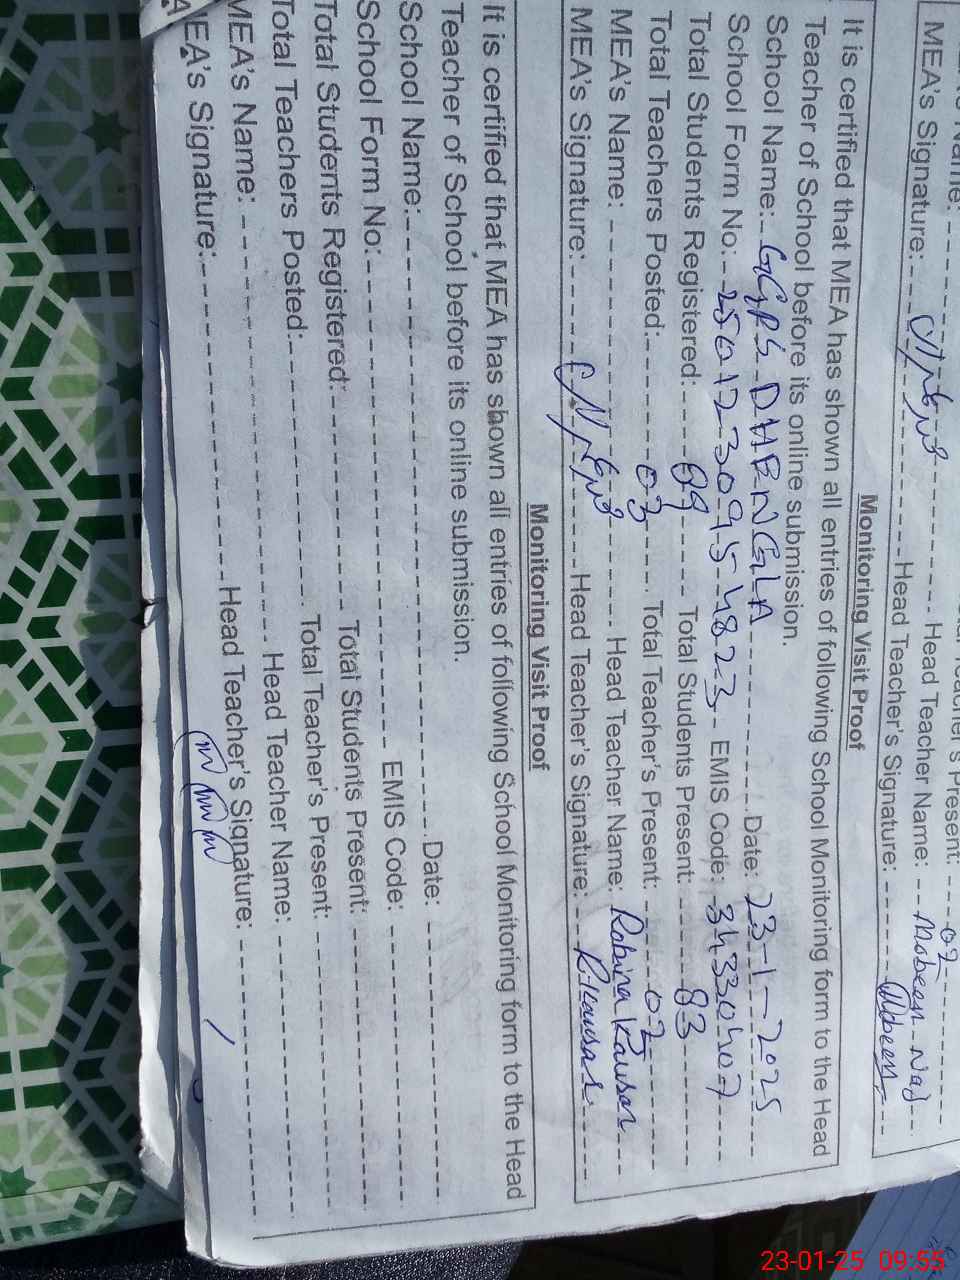 Name:
Teacher's Present: 02
MEA's Name: Head Teacher Name: Mobeen Naz
MEA's Signature: Head Teacher's Signature: Mobeen
Monitoring Visit Proof
It is certified that MEA has shown all entries of following School Monitoring form to the Head
Teacher of School before its online submission.
School Name: GGPS DHBNGLA Date: 23-1-2025
School Form No: EMIS Code: 34330407
Total Students Registered: 89 Total Students Present: 83
Total Teachers Posted: 03 Total Teacher's Present: 02
MEA's Name: Head Teacher Name: Robina Kausar
MEA's Signature: Head Teacher's Signature: R.Kausar
Monitoring Visit Proof
It is certified that MEA has shown all entries of following School Monitoring form to the Head
Teacher of School before its online submission.
School Name: Date:
School Form No: EMIS Code:
Total Students Registered: Total Students Present:
Total Teachers Posted: Total Teacher's Present:
MEA's Name: Head Teacher Name:
MEA's Signature: Head Teacher's Signature:
23-01-25 09:55